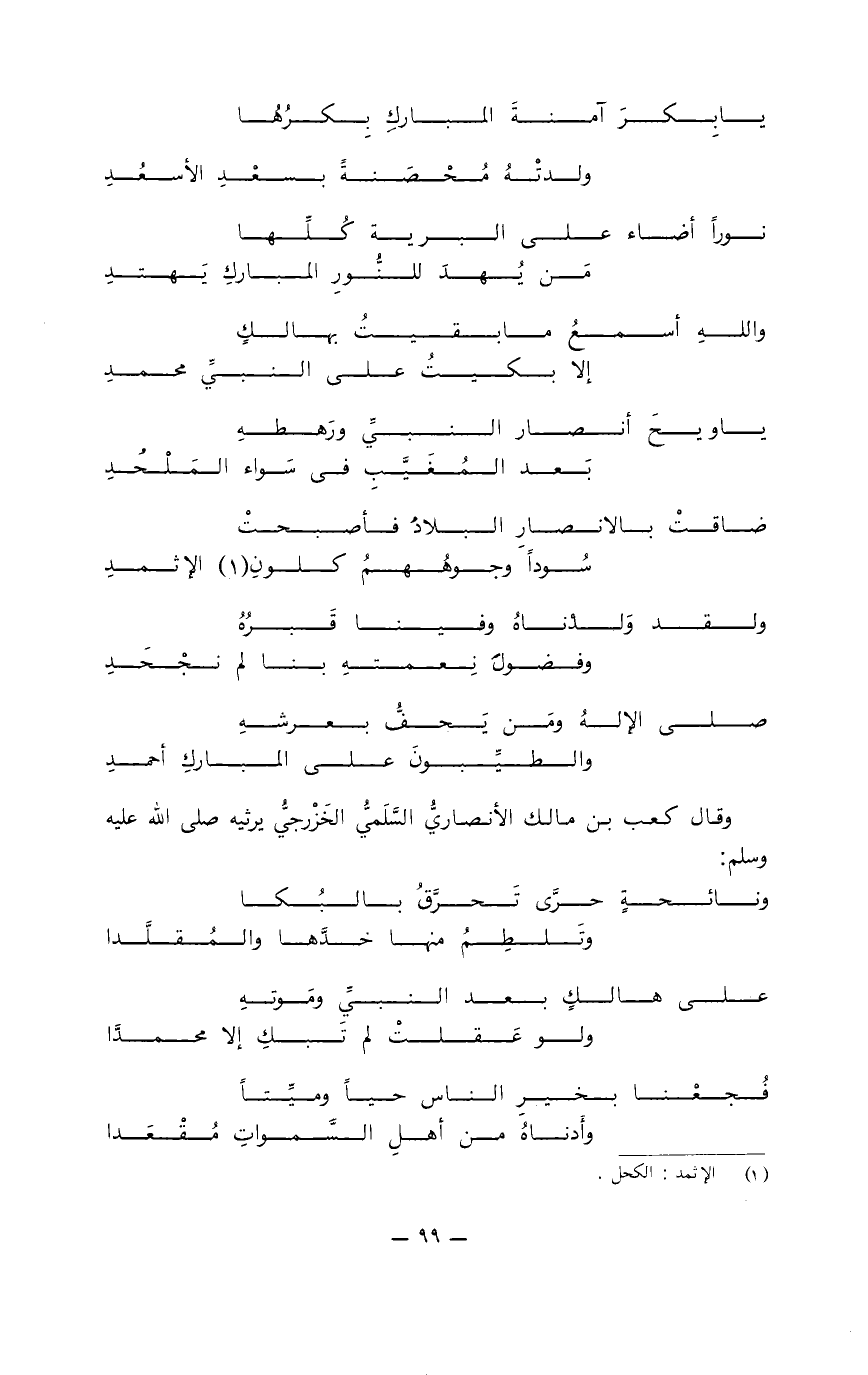 يابِكرَ آمنةَ المباركِ بِكرُهُا
ولدتْهُ مُحْصَنةً بسعْدِ الأسعُدِ
نوراً أضاء على البرية كُلِّها
مَن يُهدَ للنُّورِ المباركِ يَهتدِ
واللهِ أسمعُ مابقيتُ بهالكٍ
إلا بكيتُ على النبيِّ محمدِ
ياويحَ أنصار النبيِّ ورَهطهِ
بَعد المُغَيَّبِ فى سَواء المَلْحُدِ
ضاقتْ بالانصارِ البلادُ فأصبحتْ
سُوداً وجوهُهمُ كلونِ(١) الإثمدِ
ولقد وَلدْناهُ وفينا قَبرُهُ
وفضولُ نِعمتهِ بنا لم نجْحَدِ
صلى الإلهُ ومَن يَحفُّ بعرشهِ
والطيِّبونَ على المباركِ أحمدِ
وقال كعب بن مالك الأنصاريُّ السَّلَميُّ الخَزْرجيُّ يرثيه صلى الله عليه
وسلم:
ونائحةٍ حرَّى تَحرَّقُ بالبُكا
وتَلطِمُ منها خدَّها والمُقلَّدا
على هالكٍ بعد النبيِّ ومَوتهِ
ولو عَقلتْ لم تَبكِ إلا محمدَّا
فُجعْنا بخيرِ الناس حياً وميِّتاً
وأدناهُ من أهلِ السَّمواتِ مُقْعَدا
(١) الإثمد : الكحل .
— ٩٩ —